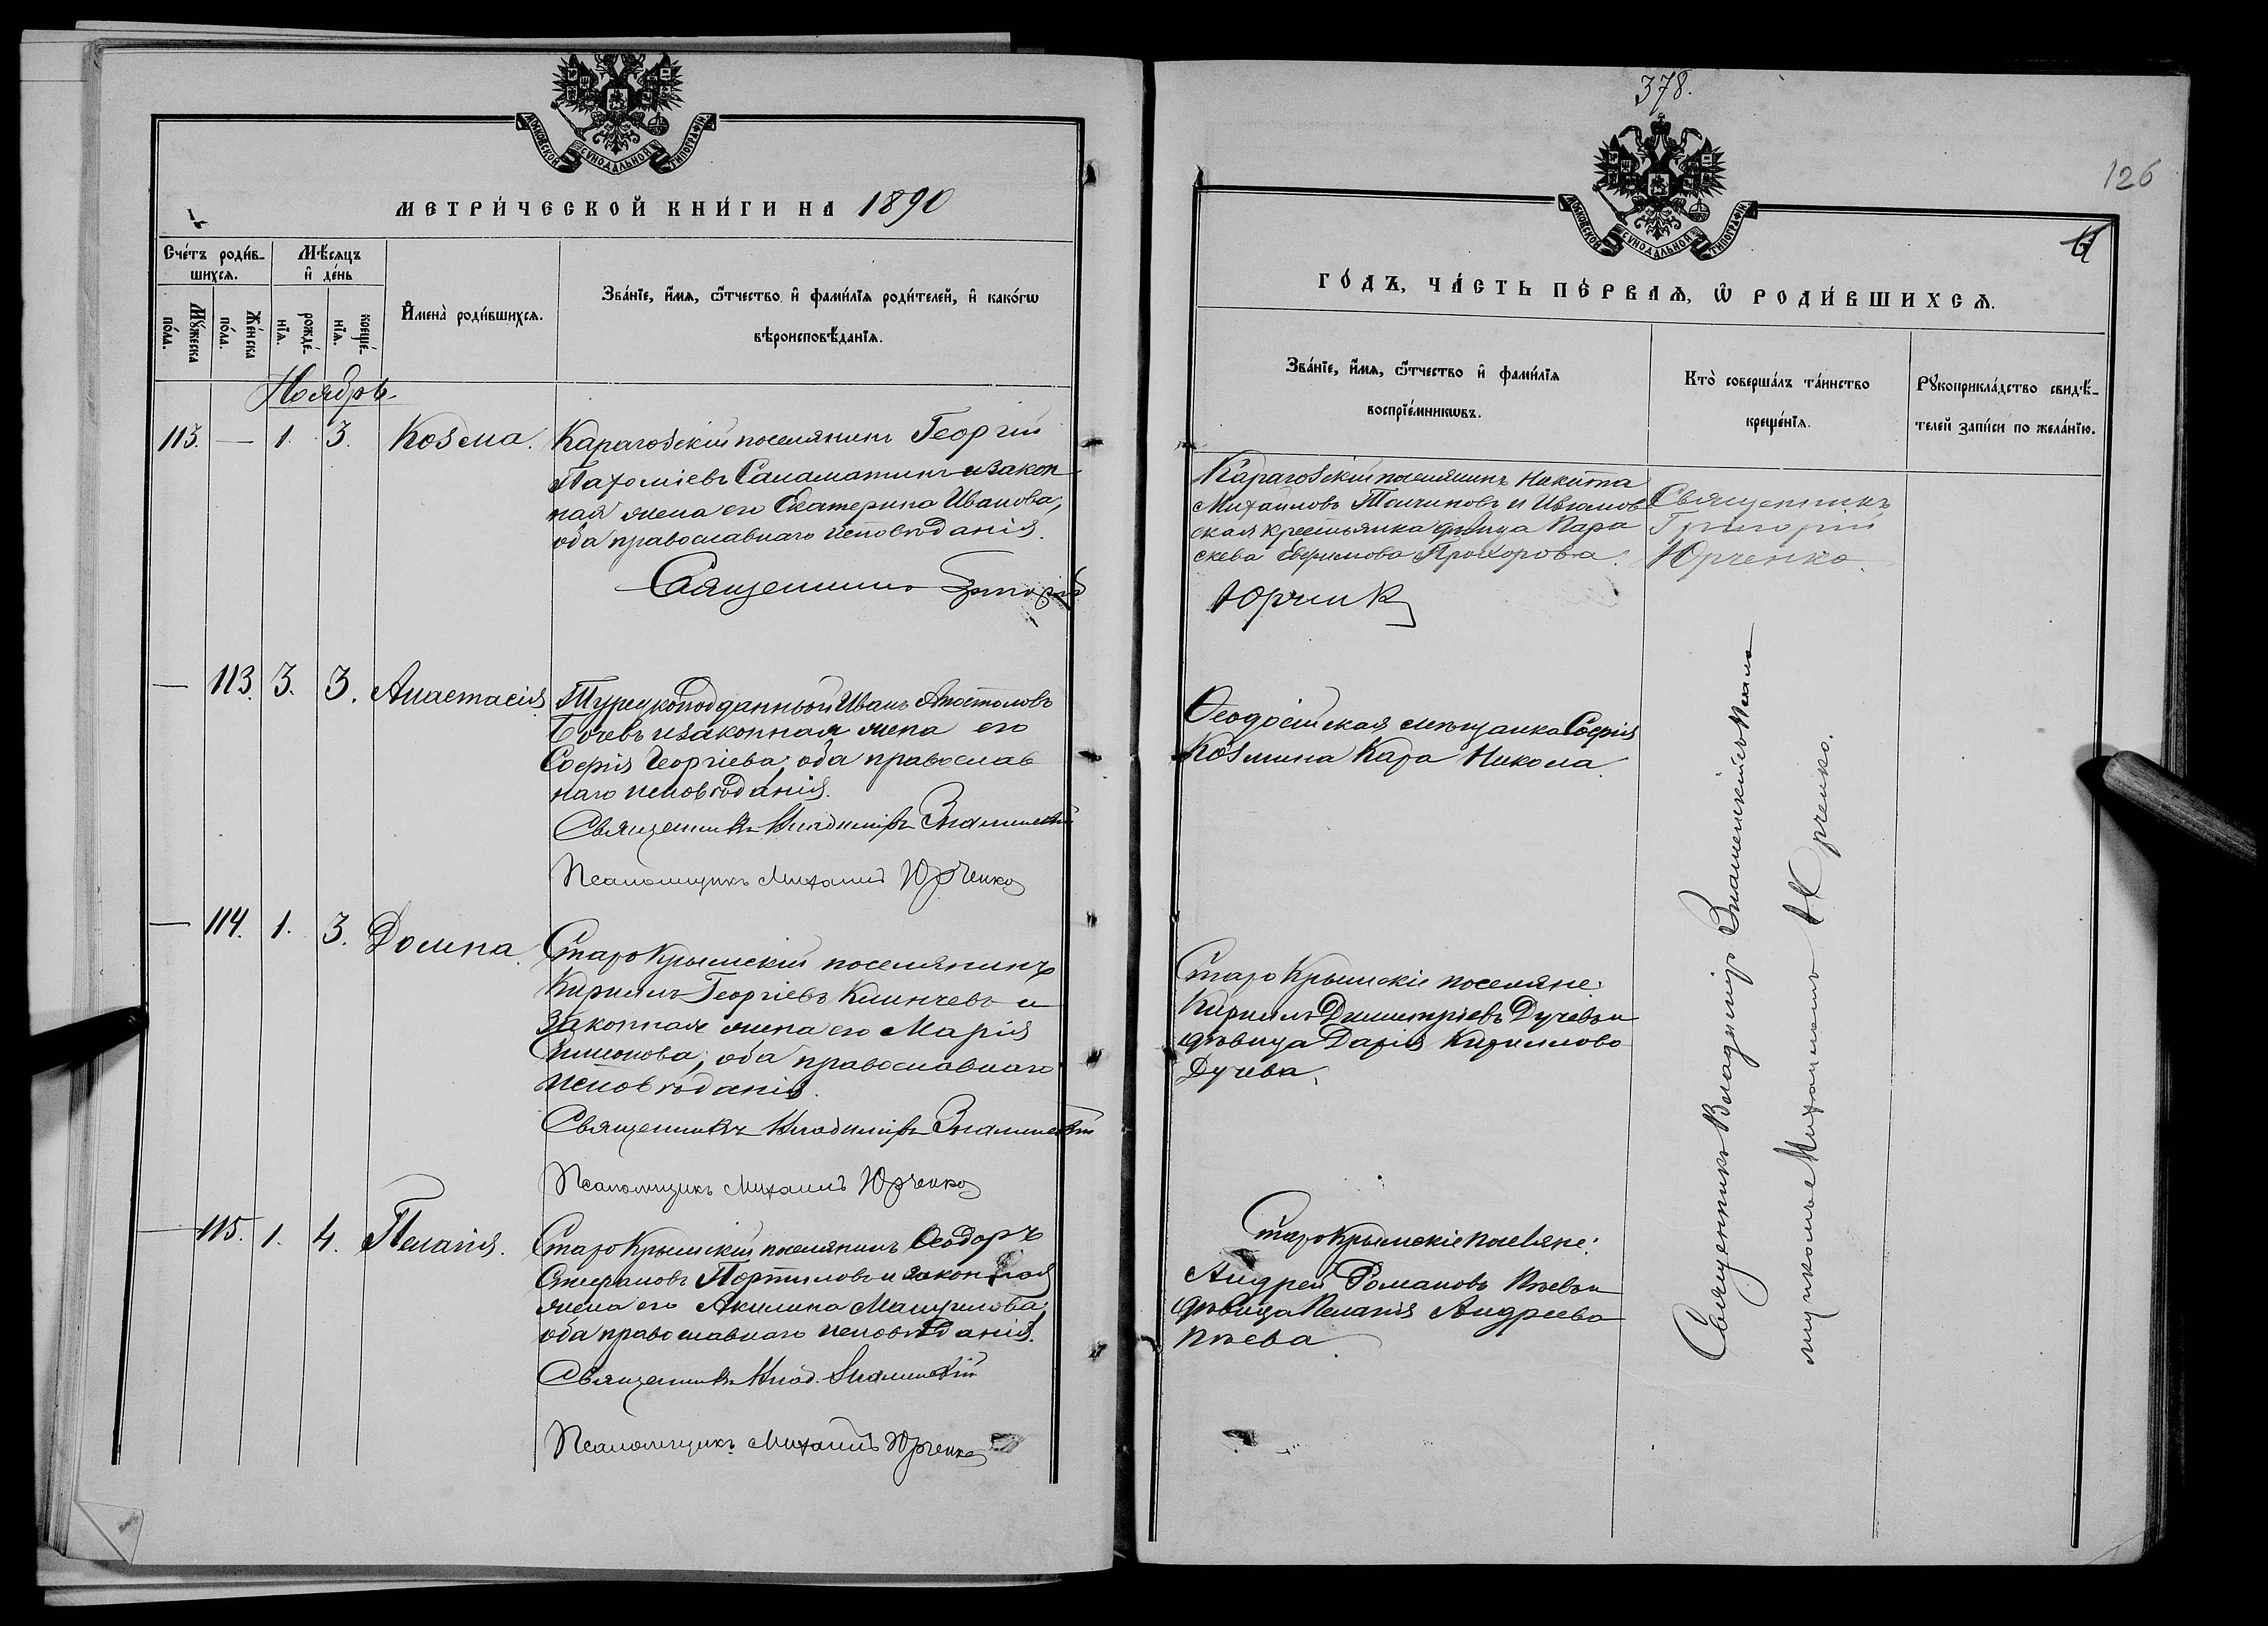 МОСКОВСКОЙ СѴНОДАЛЬНОЙ ТИПОГРАФІИ
МЕТРИ́ЧЕСКОЙ КНИ́ГИ НА 1890
Сче́тъ роди́в-
шихсѧ.
Мѣ́сяцъ
и҆ де́нь
Мꙋ́жеска
по́ла.
Же́нска
по́ла.
рожде́-
нїѧ.
креще́-
нїѧ.
И҆мена̀ роди́вшихсѧ.
Зва́нїе, и҆́мѧ, ѻ҆́тчество и҆ фами́лїѧ роди́телей, и҆ како́гѡ
вѣроисповѣ́данїѧ.
Ноябрь
113. — 1. 3. Козма.
Карагозскій поселянинъ Георгій
Пахоміевъ Саламатинъ и закон
ная жена его Екатерина Иванова,
оба православнаго исповѣданія.
Священникъ Григорій
— 113. 3. 3. Анастасія
Турецкоподданный Иванъ Апостоловъ
Бочевъ и законная жена его
Софія Георгіева, оба православ
наго исповѣданія.
Священникъ Владиміръ Знаменскій
Псаломщикъ Михаилъ Юрченко
— 114. 1. 3. Домна.
Старо Крымскій поселянинъ
Кириллъ Георгіевъ Клинчевъ и
законная жена его Марія
Симонова, оба православнаго
исповѣданія.
Священникъ Владиміръ Знаменскій
Псаломщикъ Михаилъ Юрченко
— 115. 1. 4. Пелагія.
Старо Крымскій поселянинъ Ѳеодоръ
Стефановъ Портиловъ и законная
жена его Акилина
оба православнаго исповѣданія.
Священникъ Влад. Знаменскій
Псаломщикъ Михаилъ Юрченко
378.
126
МОСКОВСКОЙ СѴНОДАЛЬНОЙ ТИПОГРАФІИ
ГО́ДЪ, ЧА́СТЬ ПЕ́РВАѦ, Ѡ҆ РОДИ́ВШИХСѦ.
Зва́нїе, и҆́мѧ, ѻ҆́тчество и҆ фами́лїѧ
воспрїе́мникѡвъ.
Кто̀ соверша́лъ та́инство
креще́нїѧ.
Рꙋкоприкла́дство свидѣ́-
телей за́писи по жела́нїю.
Карагозскій поселянинъ Никита
Михайловъ Толчиновъ и
ская крестьянка дѣвица Пара
скева Ефимова Прохорова.
Священникъ
Григорій
Юрченко.
Юрченко
Ѳеодосійская мѣщанка Софія
Козмина Кара Никола.
Старо Крымскіе поселяне:
Кириллъ Димитріевъ Дучевъ и
дѣвица Дарія Кириллова
Дучева.
Старо Крымскіе поселяне:
Андрей Романовъ и
дѣвица Пелагія Андреева
Священникъ Владиміръ Знаменскій съ псало
мщикомъ Михаиломъ Юрченко.